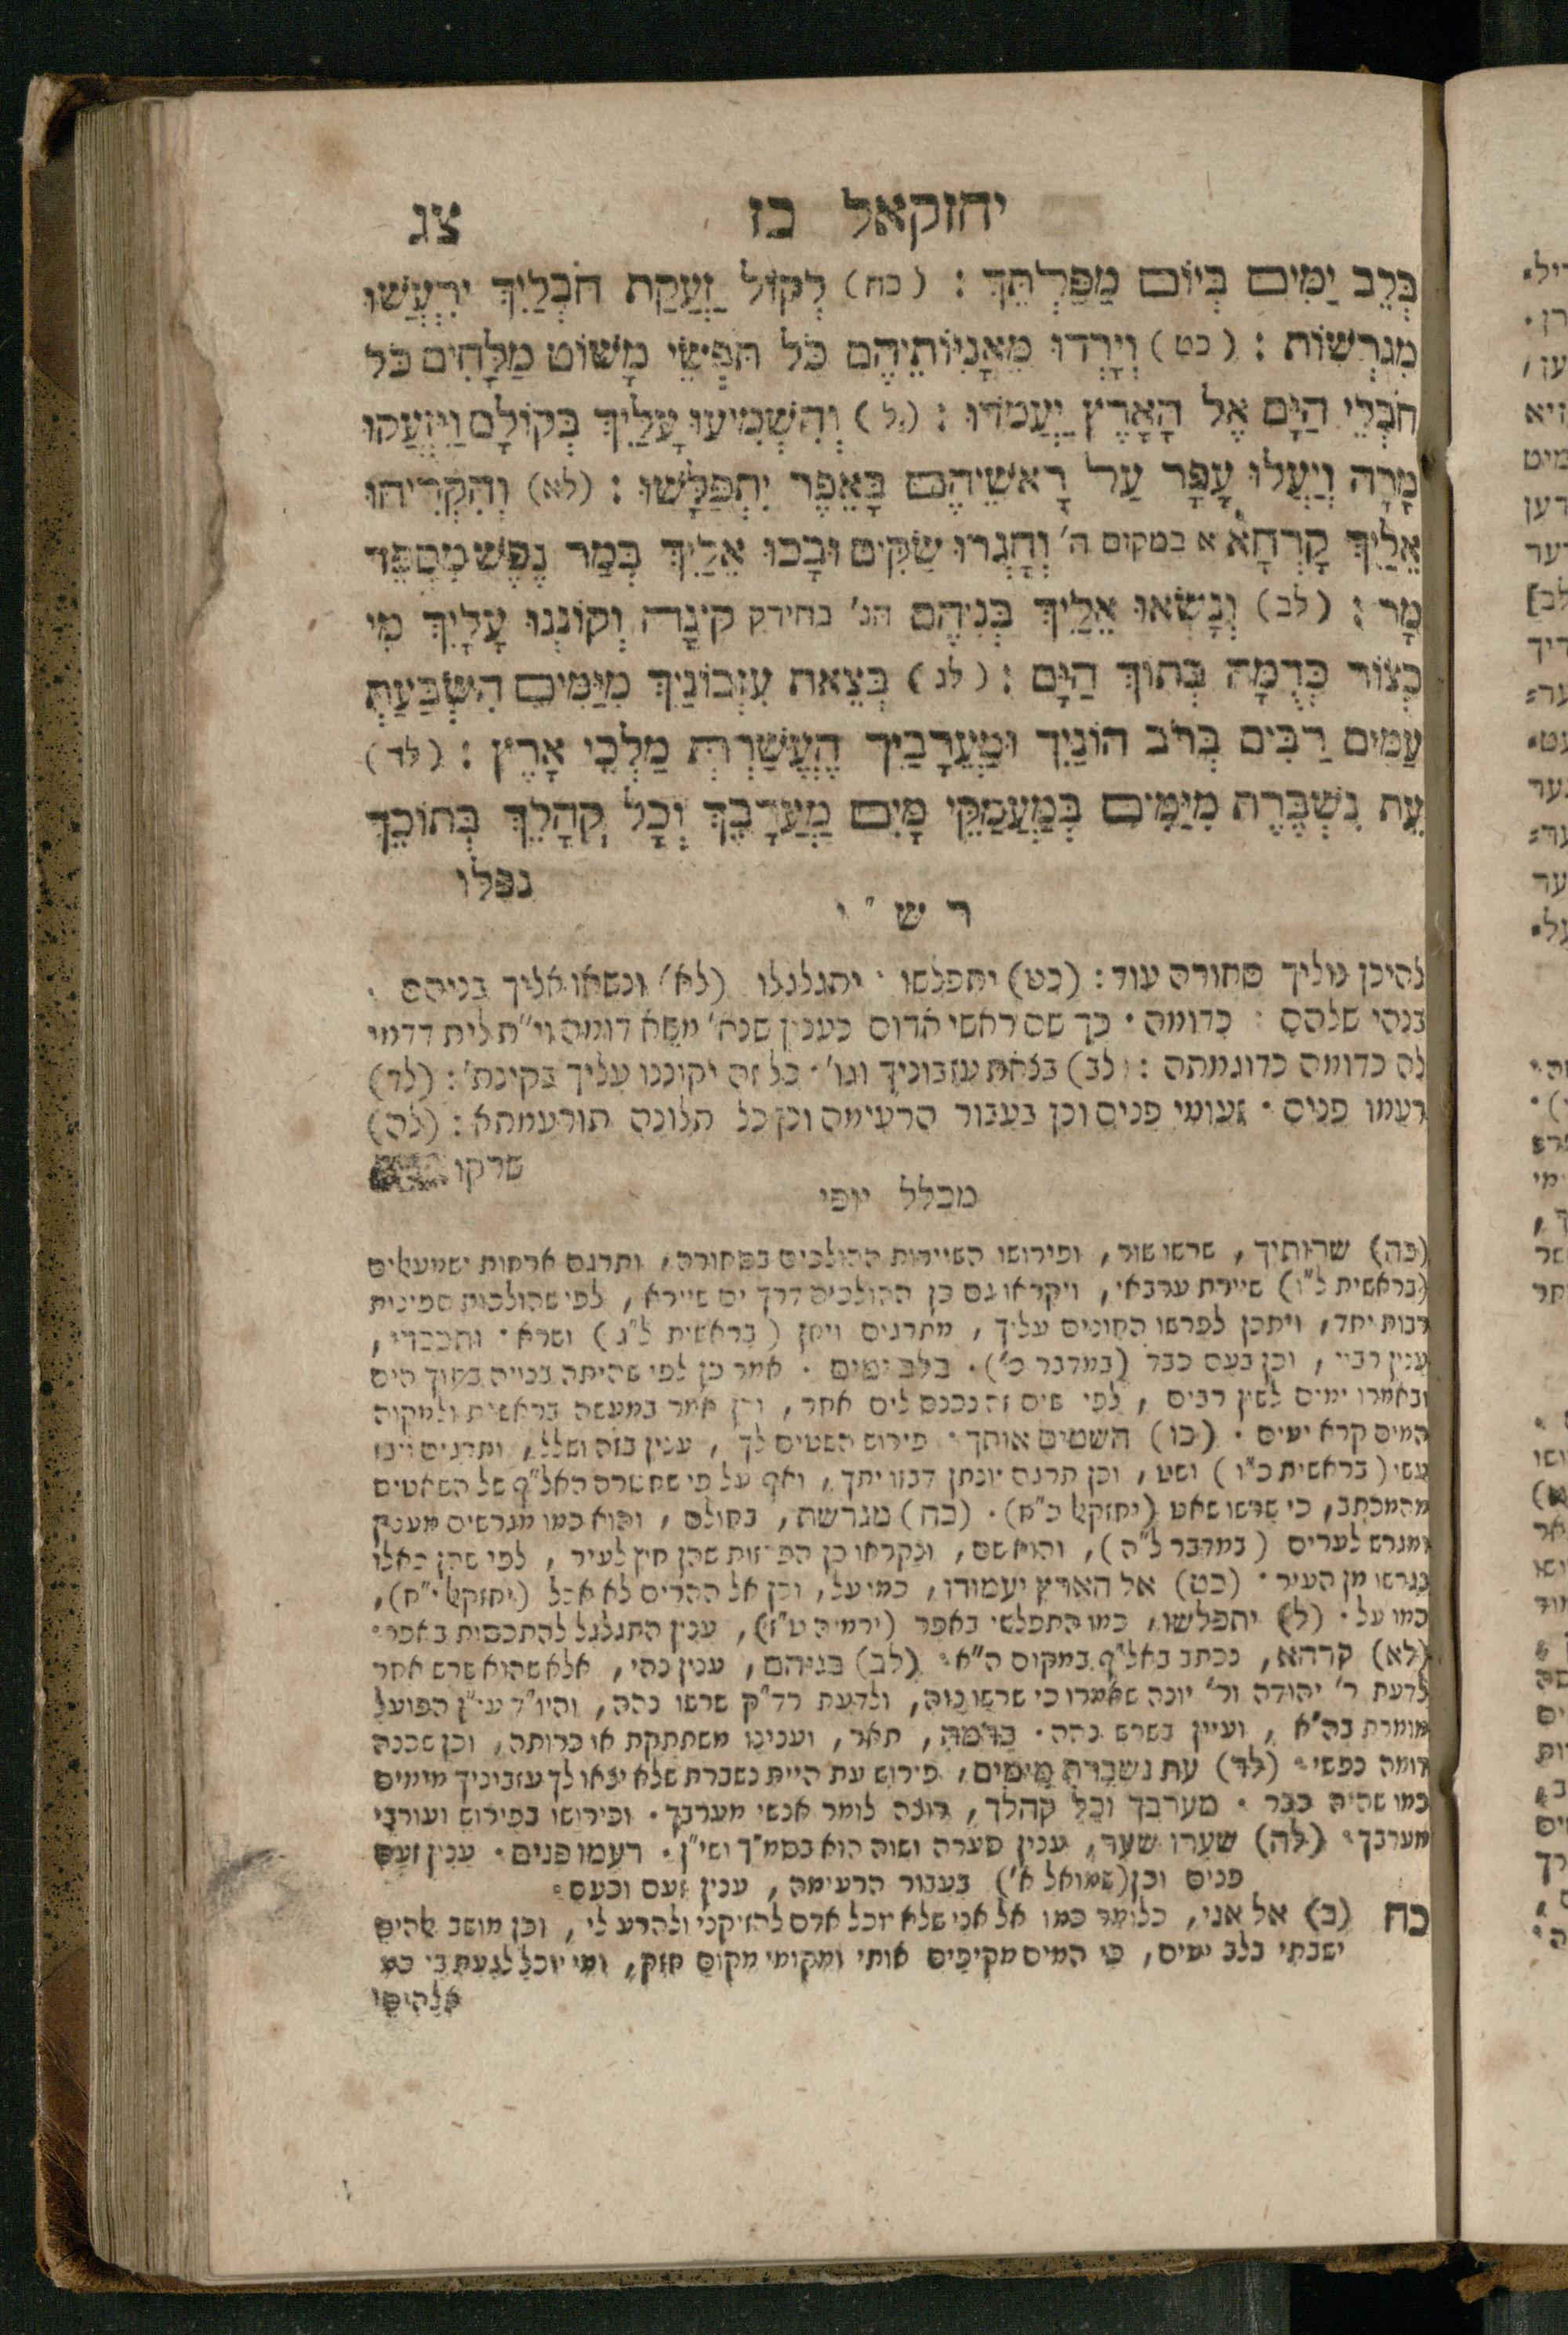 יחזקאל כז צג
בְּלֵב יַמִּים בְּיוֹם מַפַּלְתֵּךְ : (כח) לְקוֹל זַעֲקַת חֹבְלַיִךְ יִרְעֲשׁוּ
מִגְרְשׁוֹת : (כט) וְיָרְדוּ מֵאָנִיּוֹתֵיהֶם כֹּל תֹּפְשֵׂי מָשׁוֹט מַלָּחִים כֹּל
חֹבְלֵי הַיָּם אֶל הָאָרֶץ יַעֲמֹדוּ : (ל) וְהִשְׁמִיעוּ עָלַיִךְ בְּקוֹלָם וְיִזְעֲקוּ
מָרָה וְיַעֲלוּ עָפָר עַל רָאשֵׁיהֶם בָּאֵפֶר יִתְפַּלָּשׁוּ : (לא) וְהִקְרִיחוּ
אֵלַיִךְ קָרְחָא א במקום ה' וְחָגְרוּ שַׂקִּים וּבָכוּ אֵלַיִךְ בְּמַר נֶפֶשׁ מִסְפֵּד
מָר : (לב) וְנָשְׂאוּ אֵלַיִךְ בְּנִיהֶם הנ' בחירק קִינָה וְקוֹנְנוּ עָלָיִךְ מִי
כְצוֹר כְּדֻמָה בְּתוֹךְ הַיָּם : (לג) בְּצֵאת עִזְבוֹנַיִךְ מִיַּמִּים הִשְׂבַּעַתְּ
עַמִּים רַבִּים בְּרֹב הוֹנַיִךְ וּמַעֲרָבַיִךְ הֶעֱשַׁרְתְּ מַלְכֵי אָרֶץ : (לד)
עֵת נִשְׁבֶּרֶת מִיַּמִּים בְּמַעֲמַקֵּי מָיִם מַעֲרָבֵךְ וְכָל קְהָלֵךְ בְּתוֹכֵךְ
נפלו
רש"י
להיכן מוליך סחורה עוד : (כט) יתפלשו · יתגלגלו (לא) ונשאו אליך בניהם ·
בנהי שלהם : כדומה · כך שם ראשי אדום כענין שנא' משא דומה וי"ת לית דדמי
לה כדומה כדוגמתה : (לב) בצאת עזבוניך וגו' · כל זה יקוננו עליך בקינת' : (לד)
רעמו פנים · זעומי פנים וכן בעבור הרעימה וכן כל תלונה תורעמתא : (לה)
שרקו
מכלל יופי
(כה) שרותיך, שרשו שור, ופירושו השיירות ההולכים בסחורה, ותרגם ארחות ישמעאלים
(בראשית ל"ז) שיירת ערבאי, ויקראו גם כן ההולכים דרך ים שיירא, לפי שהולכות ספינות
רבות יחד, ויתכן לפרשו החונים עליך, מתרגום ויחן (בראשית ל"ג) ושרא · ותכבדי,
ענין רבוי, וכן בעם כבד (במדבר כ') · בלב ימים · אמר כן לפי שהיתה בנויה בתוך הים
ובאמרו ימים לשון רבים, לפי שים זה נכנס לים אחר, וכן אמר במעשה בראשית ולמקוה
המים קרא ימים · (כו) השטים אותך · פירוש השטים לך, ענין בזה ושלל, ותרגום ויבז
עשו (בראשית כ"ה) ושט, וכן תרגם יונתן דבזו יתך, ואף על פי שחסרה האל"ף של השאטים
מהמכתב, כי שרשו שאט (יחזקאל כ"ח) · (כח) מגרשת, בחולם, והוא כמו מגרשים מענין
ומגרש לערים (במדבר ל"ה), והוא שם, ונקראו כן הפרזות שהן חוץ לעיר, לפי שהן כאלו
נגרשו מן העיר · (כט) אל הארץ יעמודו, כמו על, וכן אל ההרים לא אכל (יחזקאל י"ח),
כמו על · (ל) יתפלשו, כמו התפלשי באפר (ירמיה ו'), ענין התגלגל להתכסות באפר ·
(לא) קרחא, נכתב באל"ף במקום ה"א · (לב) בניהם, ענין נהי, אלא שהוא שרש אחר
לדעת ר' יהודה ור' יונה שאמרו כי שרשו נוה, ולדעת רד"ק שרשו נהה, והיו"ד עי"ן הפועל
מומרת בה"א, ועיין בשרש נהה · כדמה, תאר, ועניינו משתתקת או כרותה, וכן שכנה
דומה נפשי · (לד) עת נשברת מימים, פירוש עת היית נשברת שלא יצאו לך עזבוניך מימים
כמו שהיה כבר · מערבך וכל קהלך, רוצה לומר אנשי מערבך · ופירושו כפירוש ועורבי
מערבך · (לה) שערו שער, ענין סערה ושוה הוא בסמ"ך ושי"ן · רעמו פנים · ענין זעם
פנים וכן (שמואל א') בעבור הרעימה, ענין זעם וכעס ·
כח (ב) אל אני, כלומר כמו אל אני שלא יוכל אדם להזיקני ולהרע לי, וכן מושב אלהים
ישבתי בלב ימים, כי המים מקיפים אותי ומקומי מקום חזק, ומי יוכל לגעת בי כמו
אלהים